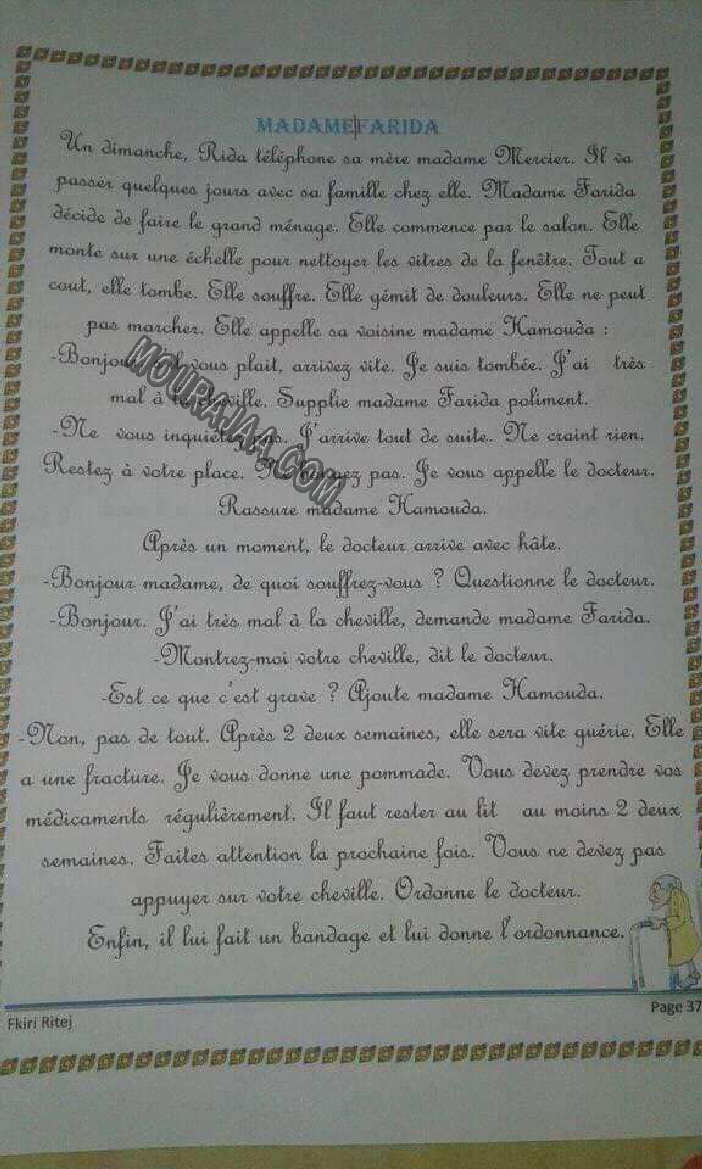 MADAME FARIDA
Un dimanche, Rida téléphone sa mère madame Mercier. Il va
passer quelques jours avec sa famille chez elle. Madame Farida
décide de faire le grand ménage. Elle commence par le salon. Elle
monte sur une échelle pour nettoyer les vitres de la fenêtre. Tout a
cout, elle tombe. Elle souffre. Elle gémit de douleurs. Elle ne peut
pas marcher. Elle appelle sa voisine madame Hamouda :
-Bonjour vous plait, arrivez vite. Je suis tombée. J'ai très
mal à la cheville. Supplie madame Farida poliment.
-Ne vous inquiétez pas. J'arrive tout de suite. Ne craint rien.
Restez à votre place. Ne bougez pas. Je vous appelle le docteur.
Rassure madame Hamouda.
Après un moment, le docteur arrive avec hâte.
-Bonjour madame, de quoi souffrez-vous ? Questionne le docteur.
-Bonjour. J'ai très mal à la cheville, demande madame Farida.
-Montrez-moi votre cheville, dit le docteur.
-Est ce que c'est grave ? Ajoute madame Hamouda.
-Non, pas de tout. Après 2 deux semaines, elle sera vite guérie. Elle
a une fracture. Je vous donne une pommade. Vous devez prendre vos
médicaments régulièrement. Il faut rester au lit au moins 2 deux
semaines. Faites attention la prochaine fois. Vous ne devez pas
appuyer sur votre cheville. Ordonne le docteur.
Enfin, il lui fait un bandage et lui donne l'ordonnance.
MOURAJAA.COM
Fkiri Ritej
Page 37